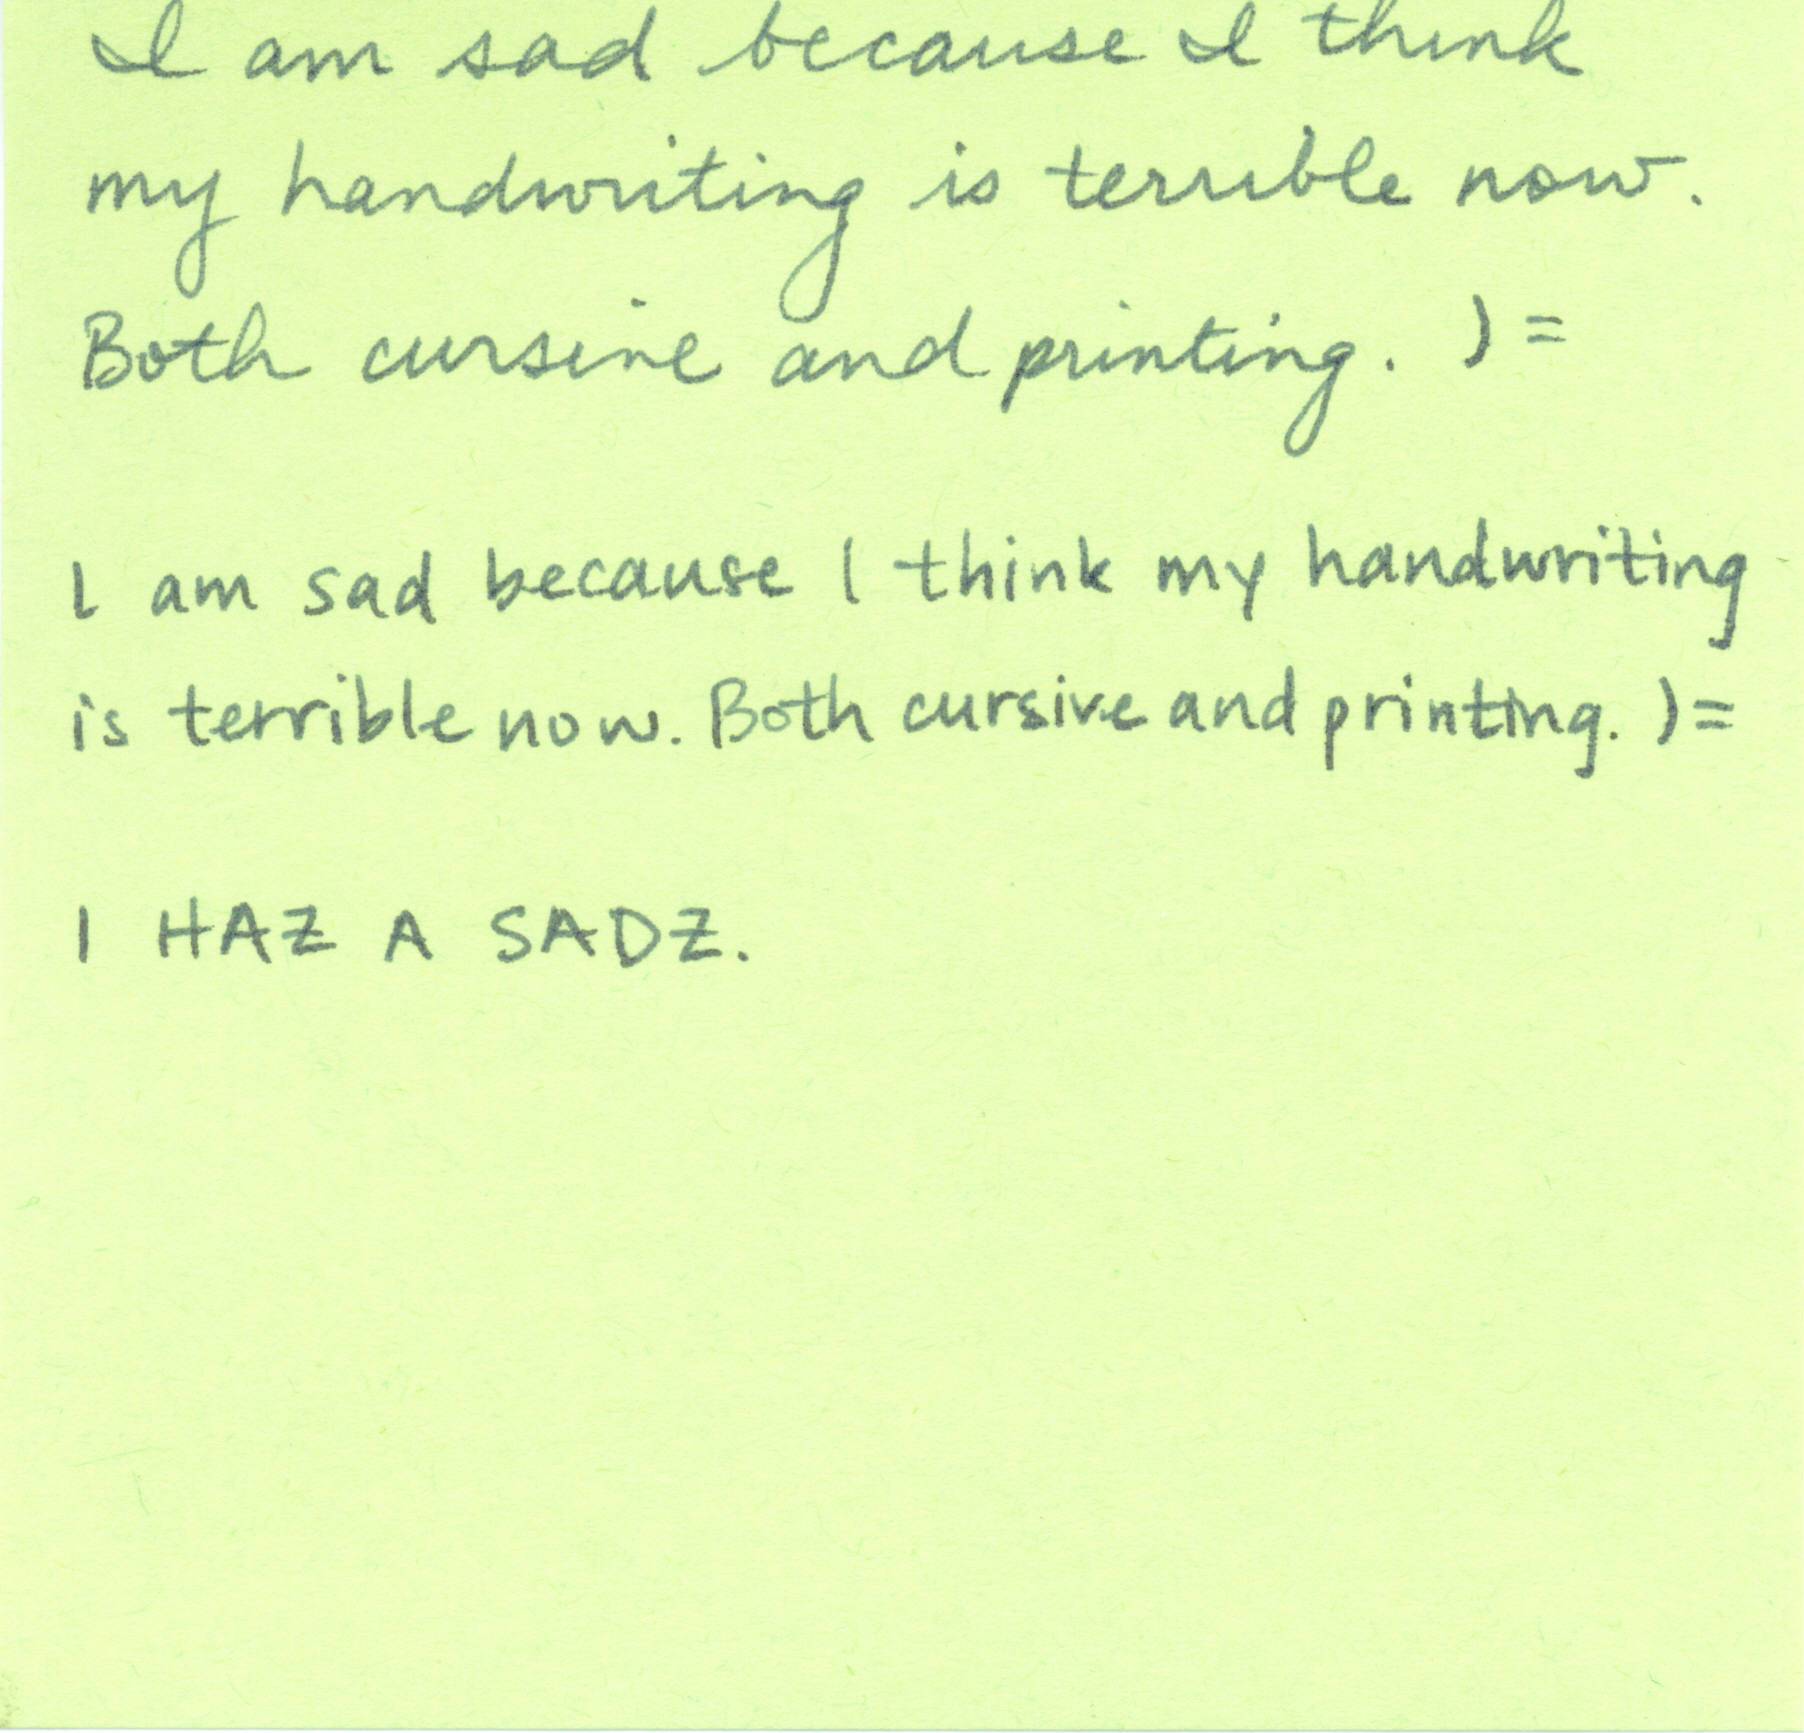 I am sad because I think
my handwriting is terrible now.
Both cursive and printing. )=
I am sad because I think my handwriting
is terrible now. Both cursive and printing. )=
I HAZ A SADZ.